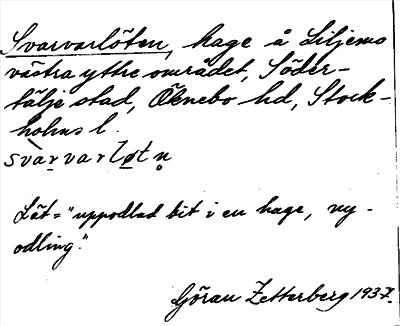 Svarvarlöten, hage å Liljemo
västra yttre området, Söder-
tälje stad, Öknebo hd, Stock-
holms l.
svàr̤varlø̱tn̥
Löt = "uppodlad bit i en hage, ny-
odling."
Göran Zetterberg 1937.